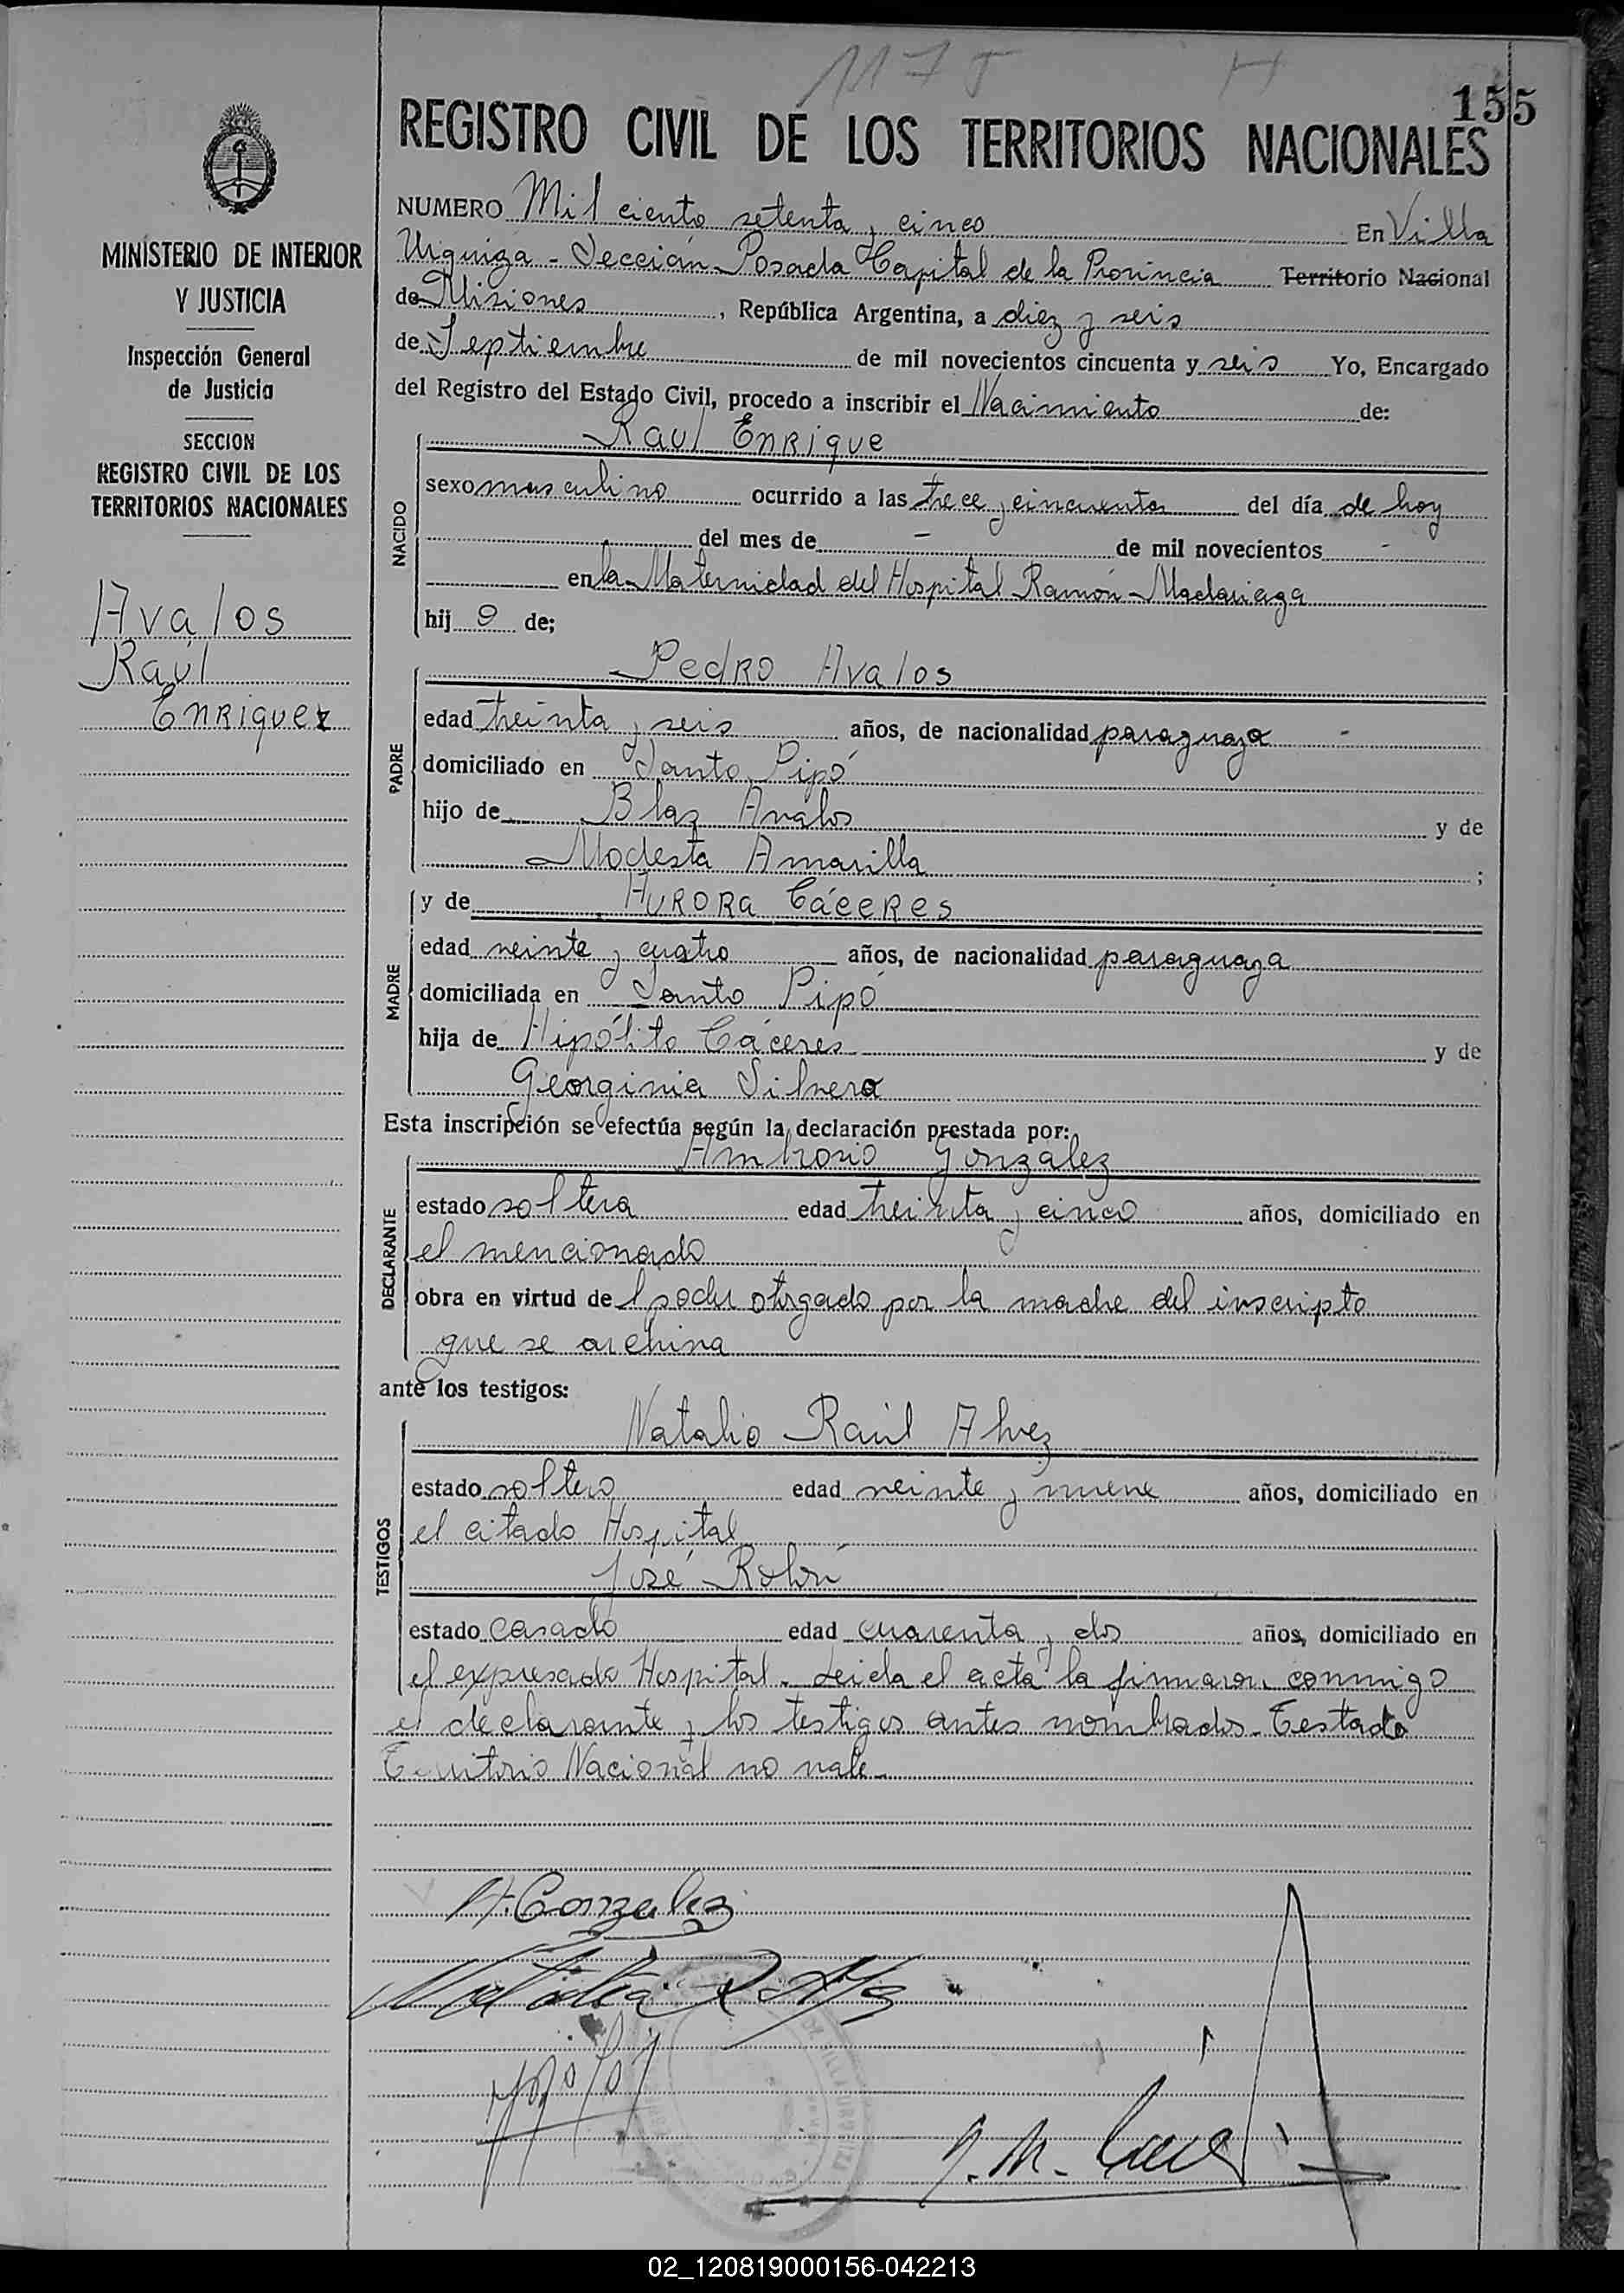 1175 H
155
REGISTRO CIVIL DE LOS TERRITORIOS NACIONALES
MINISTERIO DE INTERIOR
Y JUSTICIA
Inspección General
de Justicia
SECCION
REGISTRO CIVIL DE LOS
TERRITORIOS NACIONALES
Avalos
Raúl
Enriquez
NUMERO Mil ciento setenta y cinco En Villa
Urquiza - Sección Posada Capital de la Provincia Territorio Nacional
de Misiones, República Argentina, a diez y seis
de Septiembre de mil novecientos cincuenta y seis Yo, Encargado
del Registro del Estado Civil, procedo a inscribir el Nacimiento de:
Raul Enrique
NACIDO
sexo masculino ocurrido a las trece y cincuenta del día de hoy
del mes de - de mil novecientos -
en la Maternidad del Hospital Ramón Madariaga
hij o de;
Pedro Avalos
PADRE
edad treinta y seis años, de nacionalidad paraguaya -
domiciliado en Santo Pipó
hijo de Blas Avalos y de
Modesta Amarilla ;
y de Aurora Cáceres
MADRE
edad veinte y cuatro años, de nacionalidad paraguaya
domiciliada en Santo Pipó
hija de Hipólito Cáceres y de
Georginia Silvera
Esta inscripción se efectúa según la declaración prestada por:
Ambrosio González
DECLARANTE
estado soltera edad treinta y cinco años, domiciliado en
el mencionado
obra en virtud de l poder otorgado por la madre del inscripto
que se archiva
ante los testigos:
Natalio Raúl Alvez
TESTIGOS
estado soltero edad veinte y nueve años, domiciliado en
el citado Hospital
José Rolón
estado casado edad cuarenta y dos años, domiciliado en
el expresado Hospital. Leída el acta la firmaron conmigo
el declarante y los testigos antes nombrados. Testado
Territorio Nacional no vale.
A. Gonzalez
02_120819000156-042213